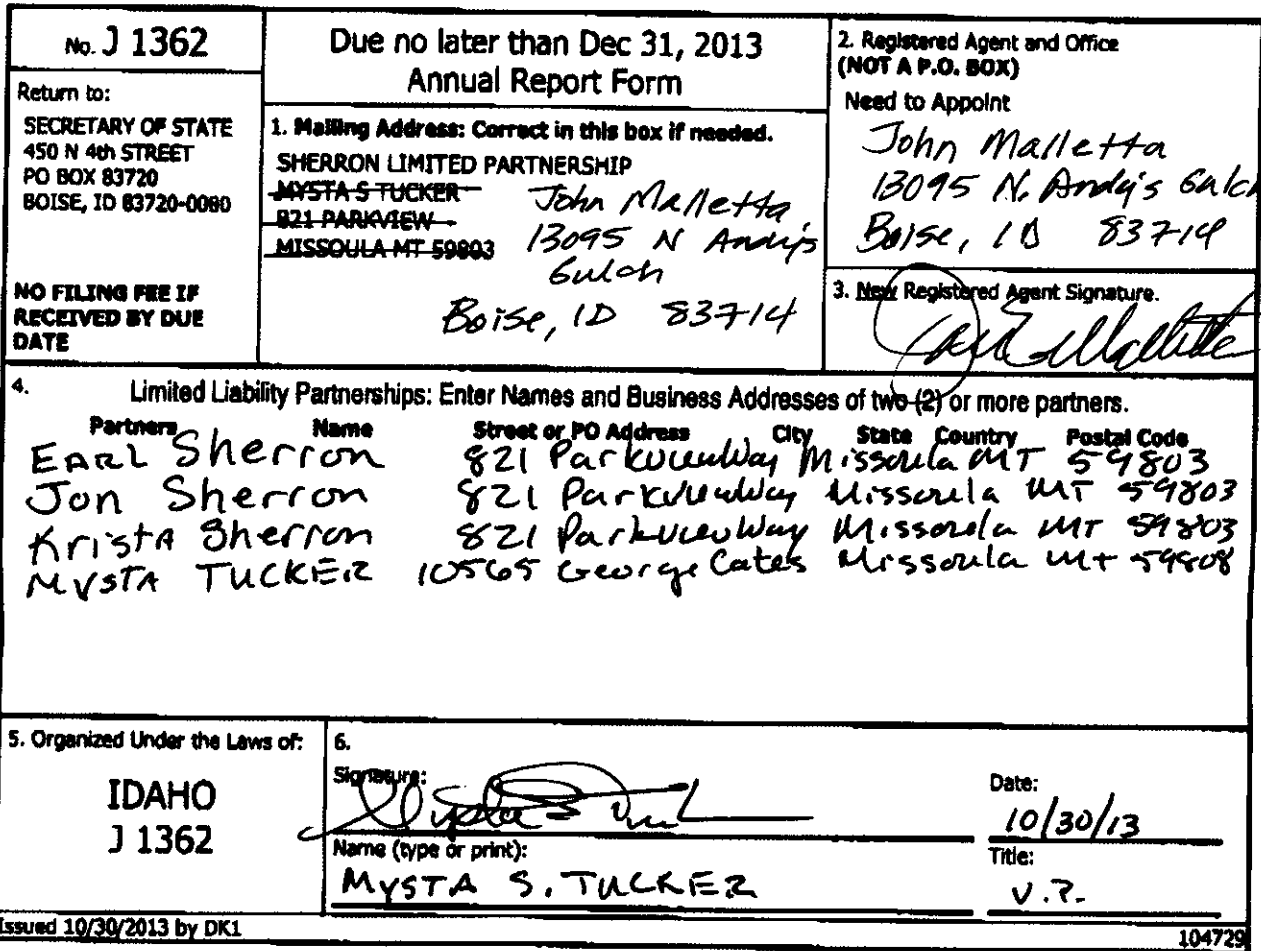 No. J 1362
Return to:
SECRETARY OF STATE
450 N 4th STREET
PO BOX 83720
BOISE, ID 83720-0080
NO FILING FEE IF
RECEIVED BY DUE
DATE
Due no later than Dec 31, 2013
Annual Report Form
1. Mailing Address: Correct in this box if needed.
SHERRON LIMITED PARTNERSHIP
MYSTA S TUCKER
821 PARKVIEW
MISSOULA MT 59803
John Malletta
13095 N Andy's
Gulch
Boise, ID 83714
2. Registered Agent and Office
(NOT A P.O. BOX)
Need to Appoint
John Malletta
13095 N. Andy's Gulch
Boise, ID 83714
3. New Registered Agent Signature.
4. Limited Liability Partnerships: Enter Names and Business Addresses of two (2) or more partners.
Partners Name Street or PO Address City State Country Postal Code
EARL Sherron 821 Parkview Way Missoula MT 59803
Jon Sherron 821 Parkview Way Missoula MT 59803
Krista Sherron 821 Parkview Way Missoula MT 59803
MYSTA TUCKER 10565 George Cates Missoula Mt 59808
5. Organized Under the Laws of:
IDAHO
J 1362
6.
Signature:
Date:
10/30/13
Name (type or print):
MYSTA S. TUCKER
Title:
V.P.
Issued 10/30/2013 by DK1
104729